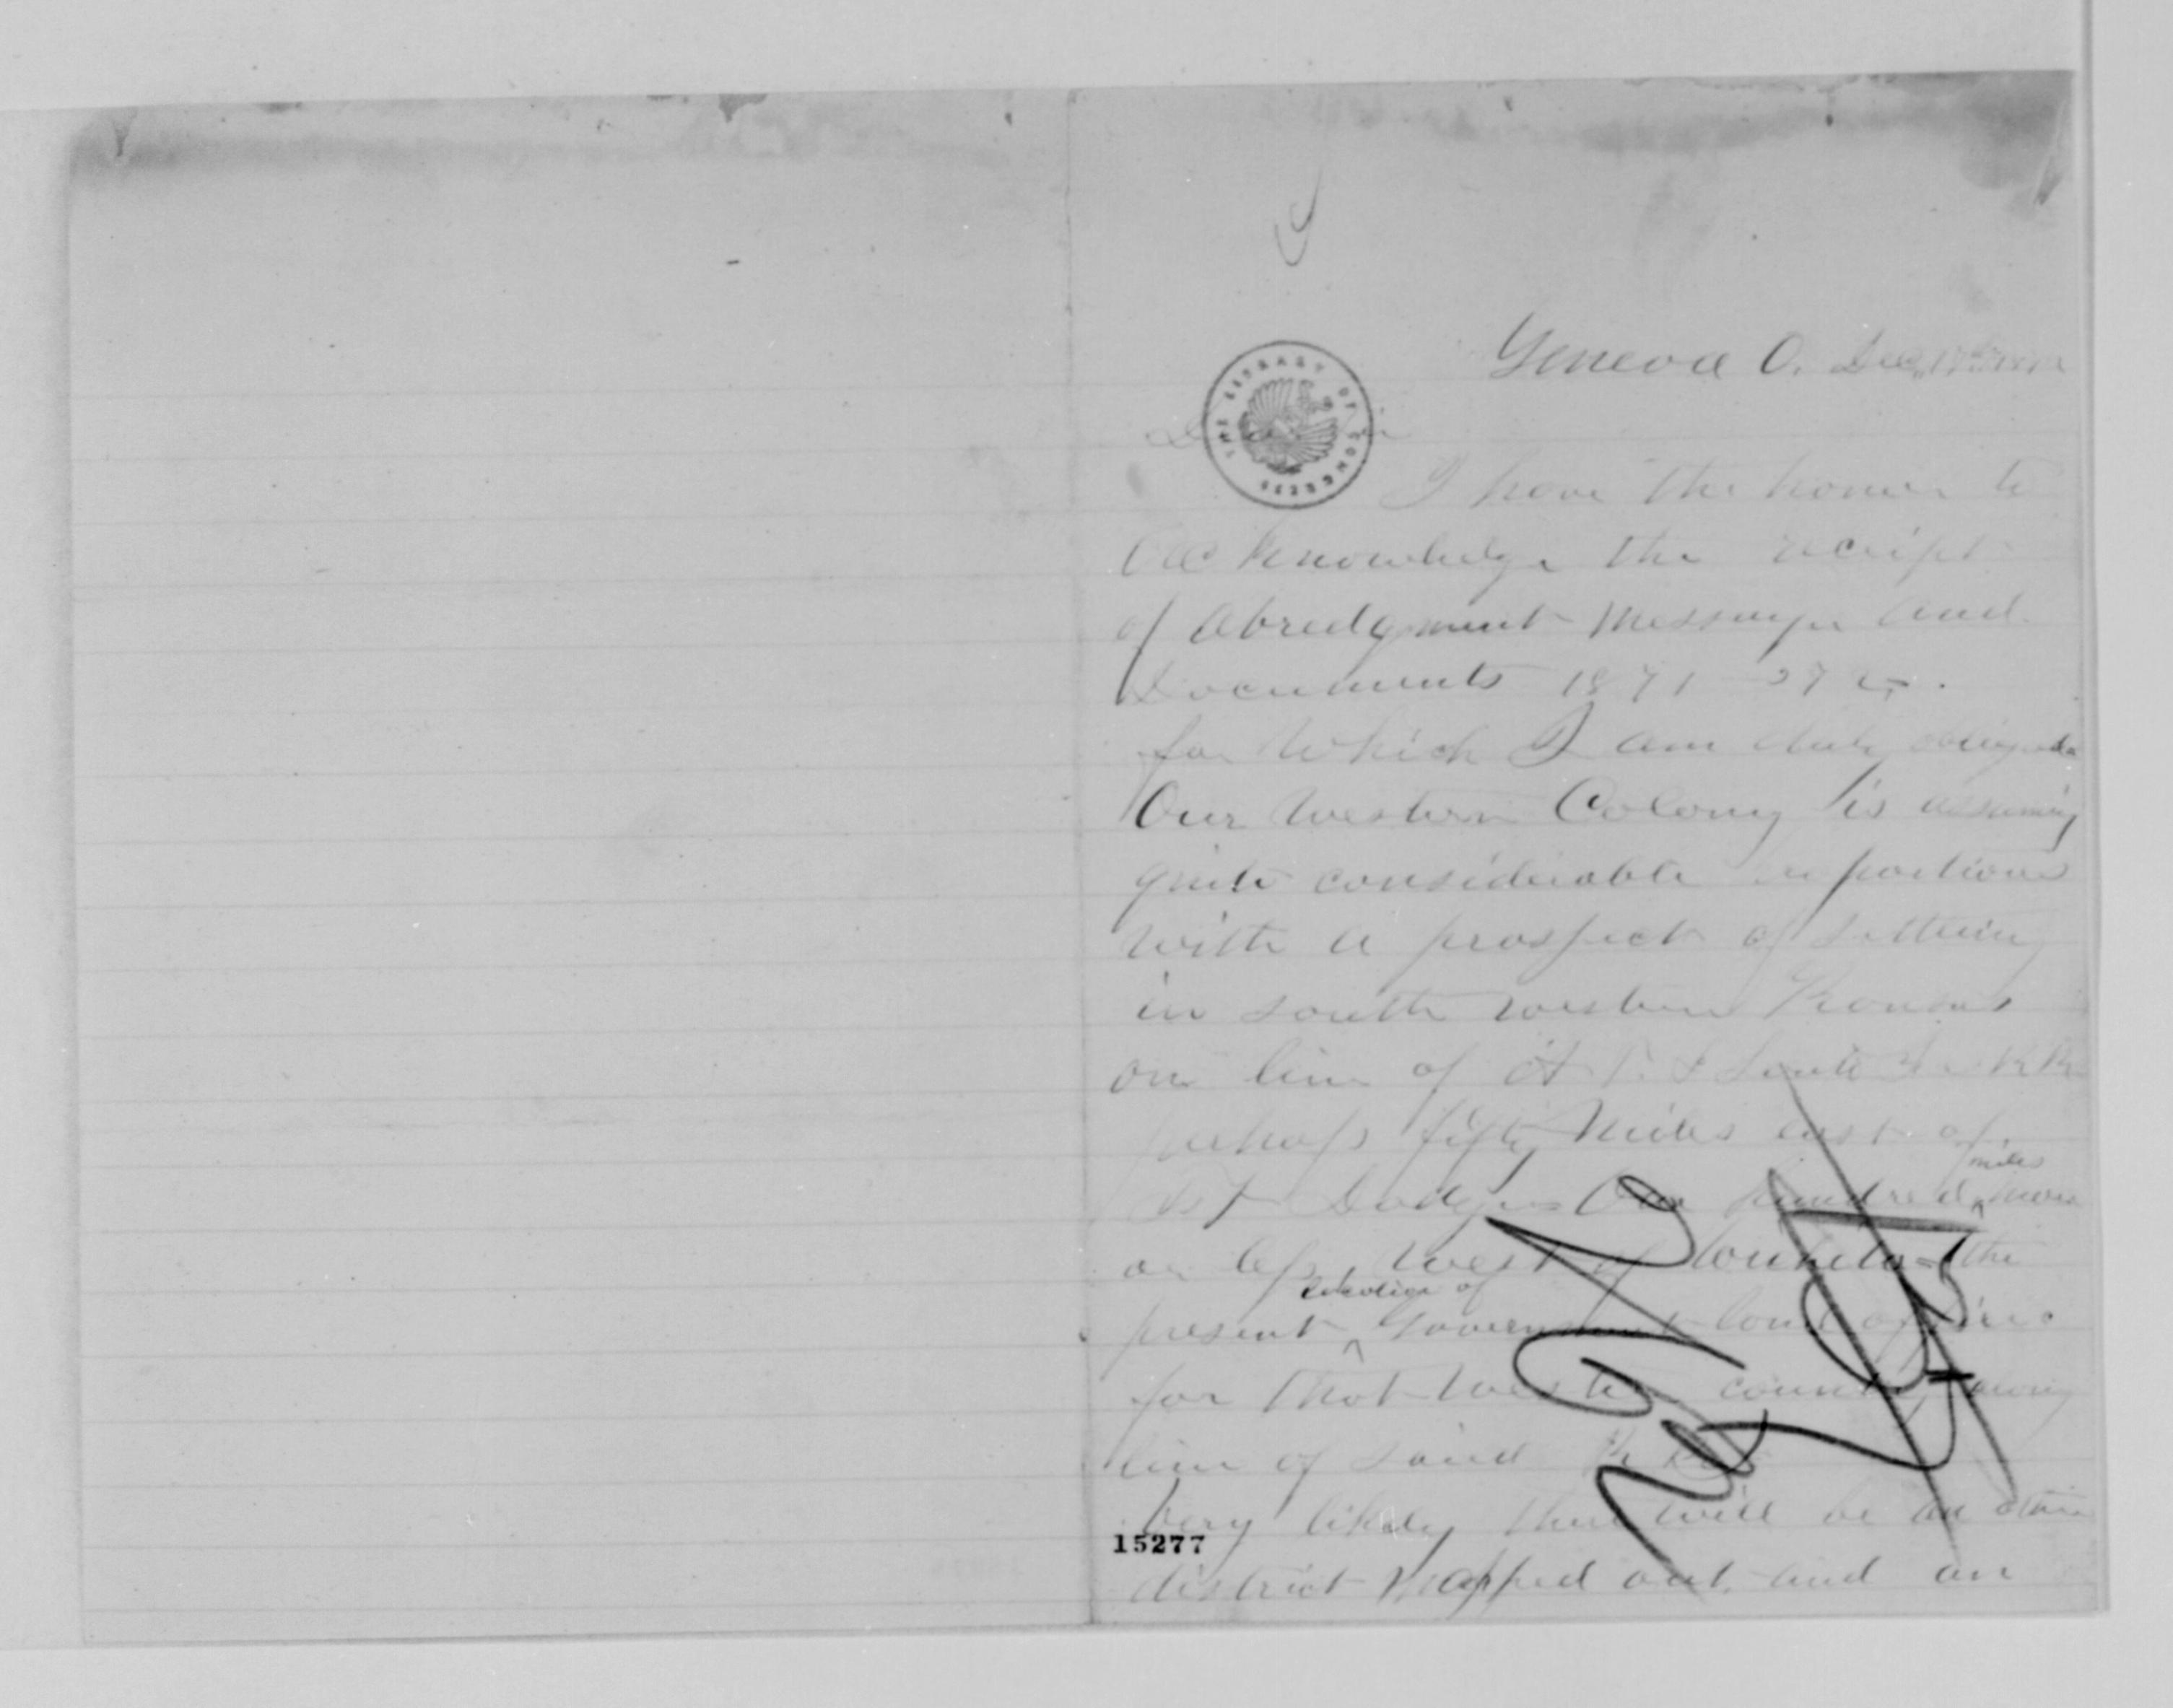 Geneva O. Dec
THE LIBRARY OF CONGRESS
I have the honor to
acknowledge the receipt
of Abredgment Message and
Documents 1871
for which I am duly obliged
Our western Colony is assuming
quite considerable
with a prospect of settling
in south western Kansas
on line of A T & Sante Fe R R
perhaps fifty miles east of
Ft Dodge One hundred miles more
or less west of the
present location of Government land office
for that western country along
line of said R R
very likely there will be an other
district mapped out and an
15277